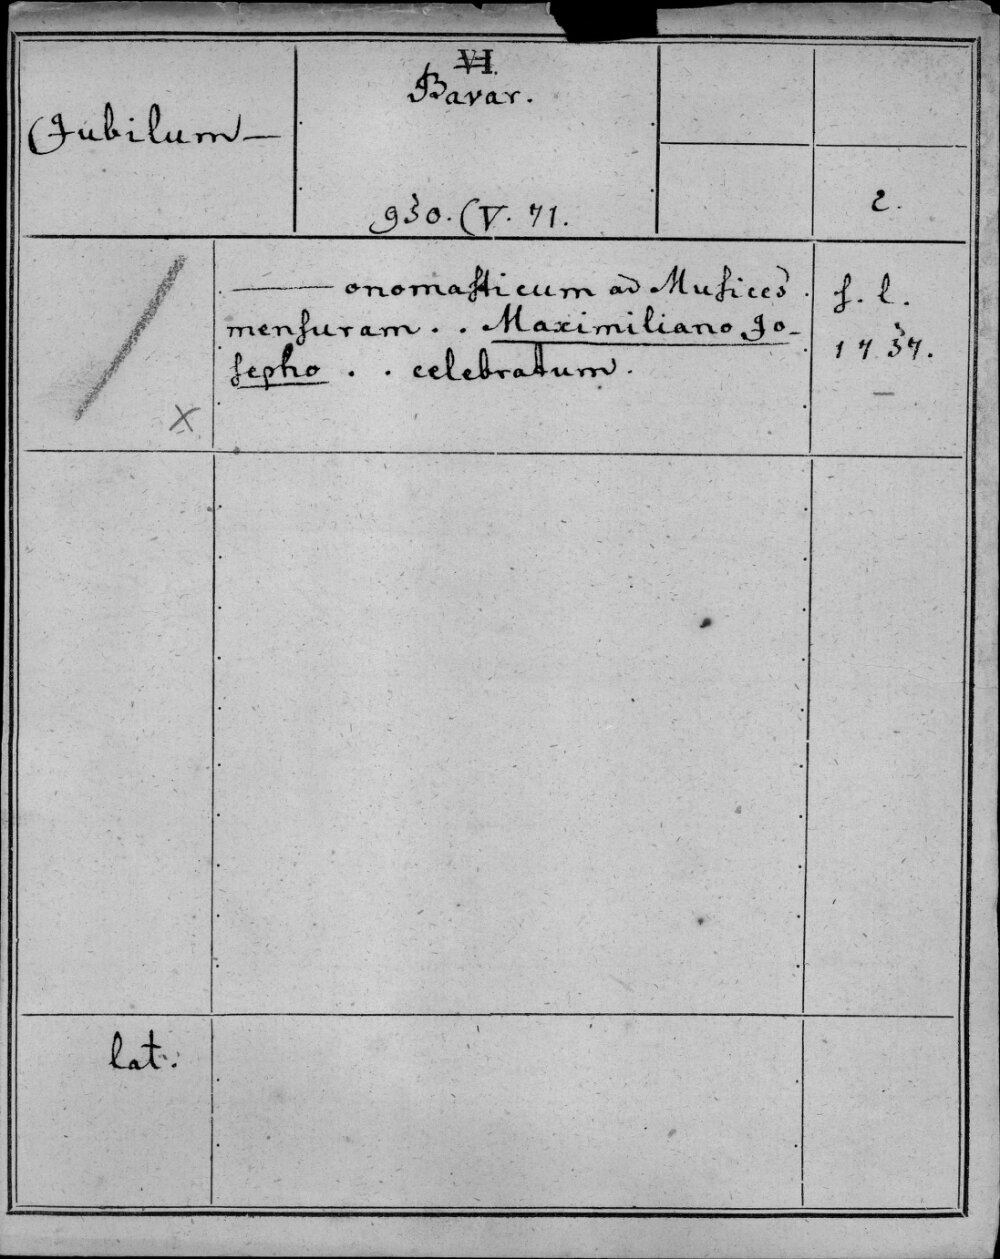 VI.
Bavar.
Jubilum—
930. (V. 71.
2.
—— onomasticum ad Musices
mensuram . . Maximiliano Jo-
sepho . . celebratum.
s. l.
1737.
—
X
lat.